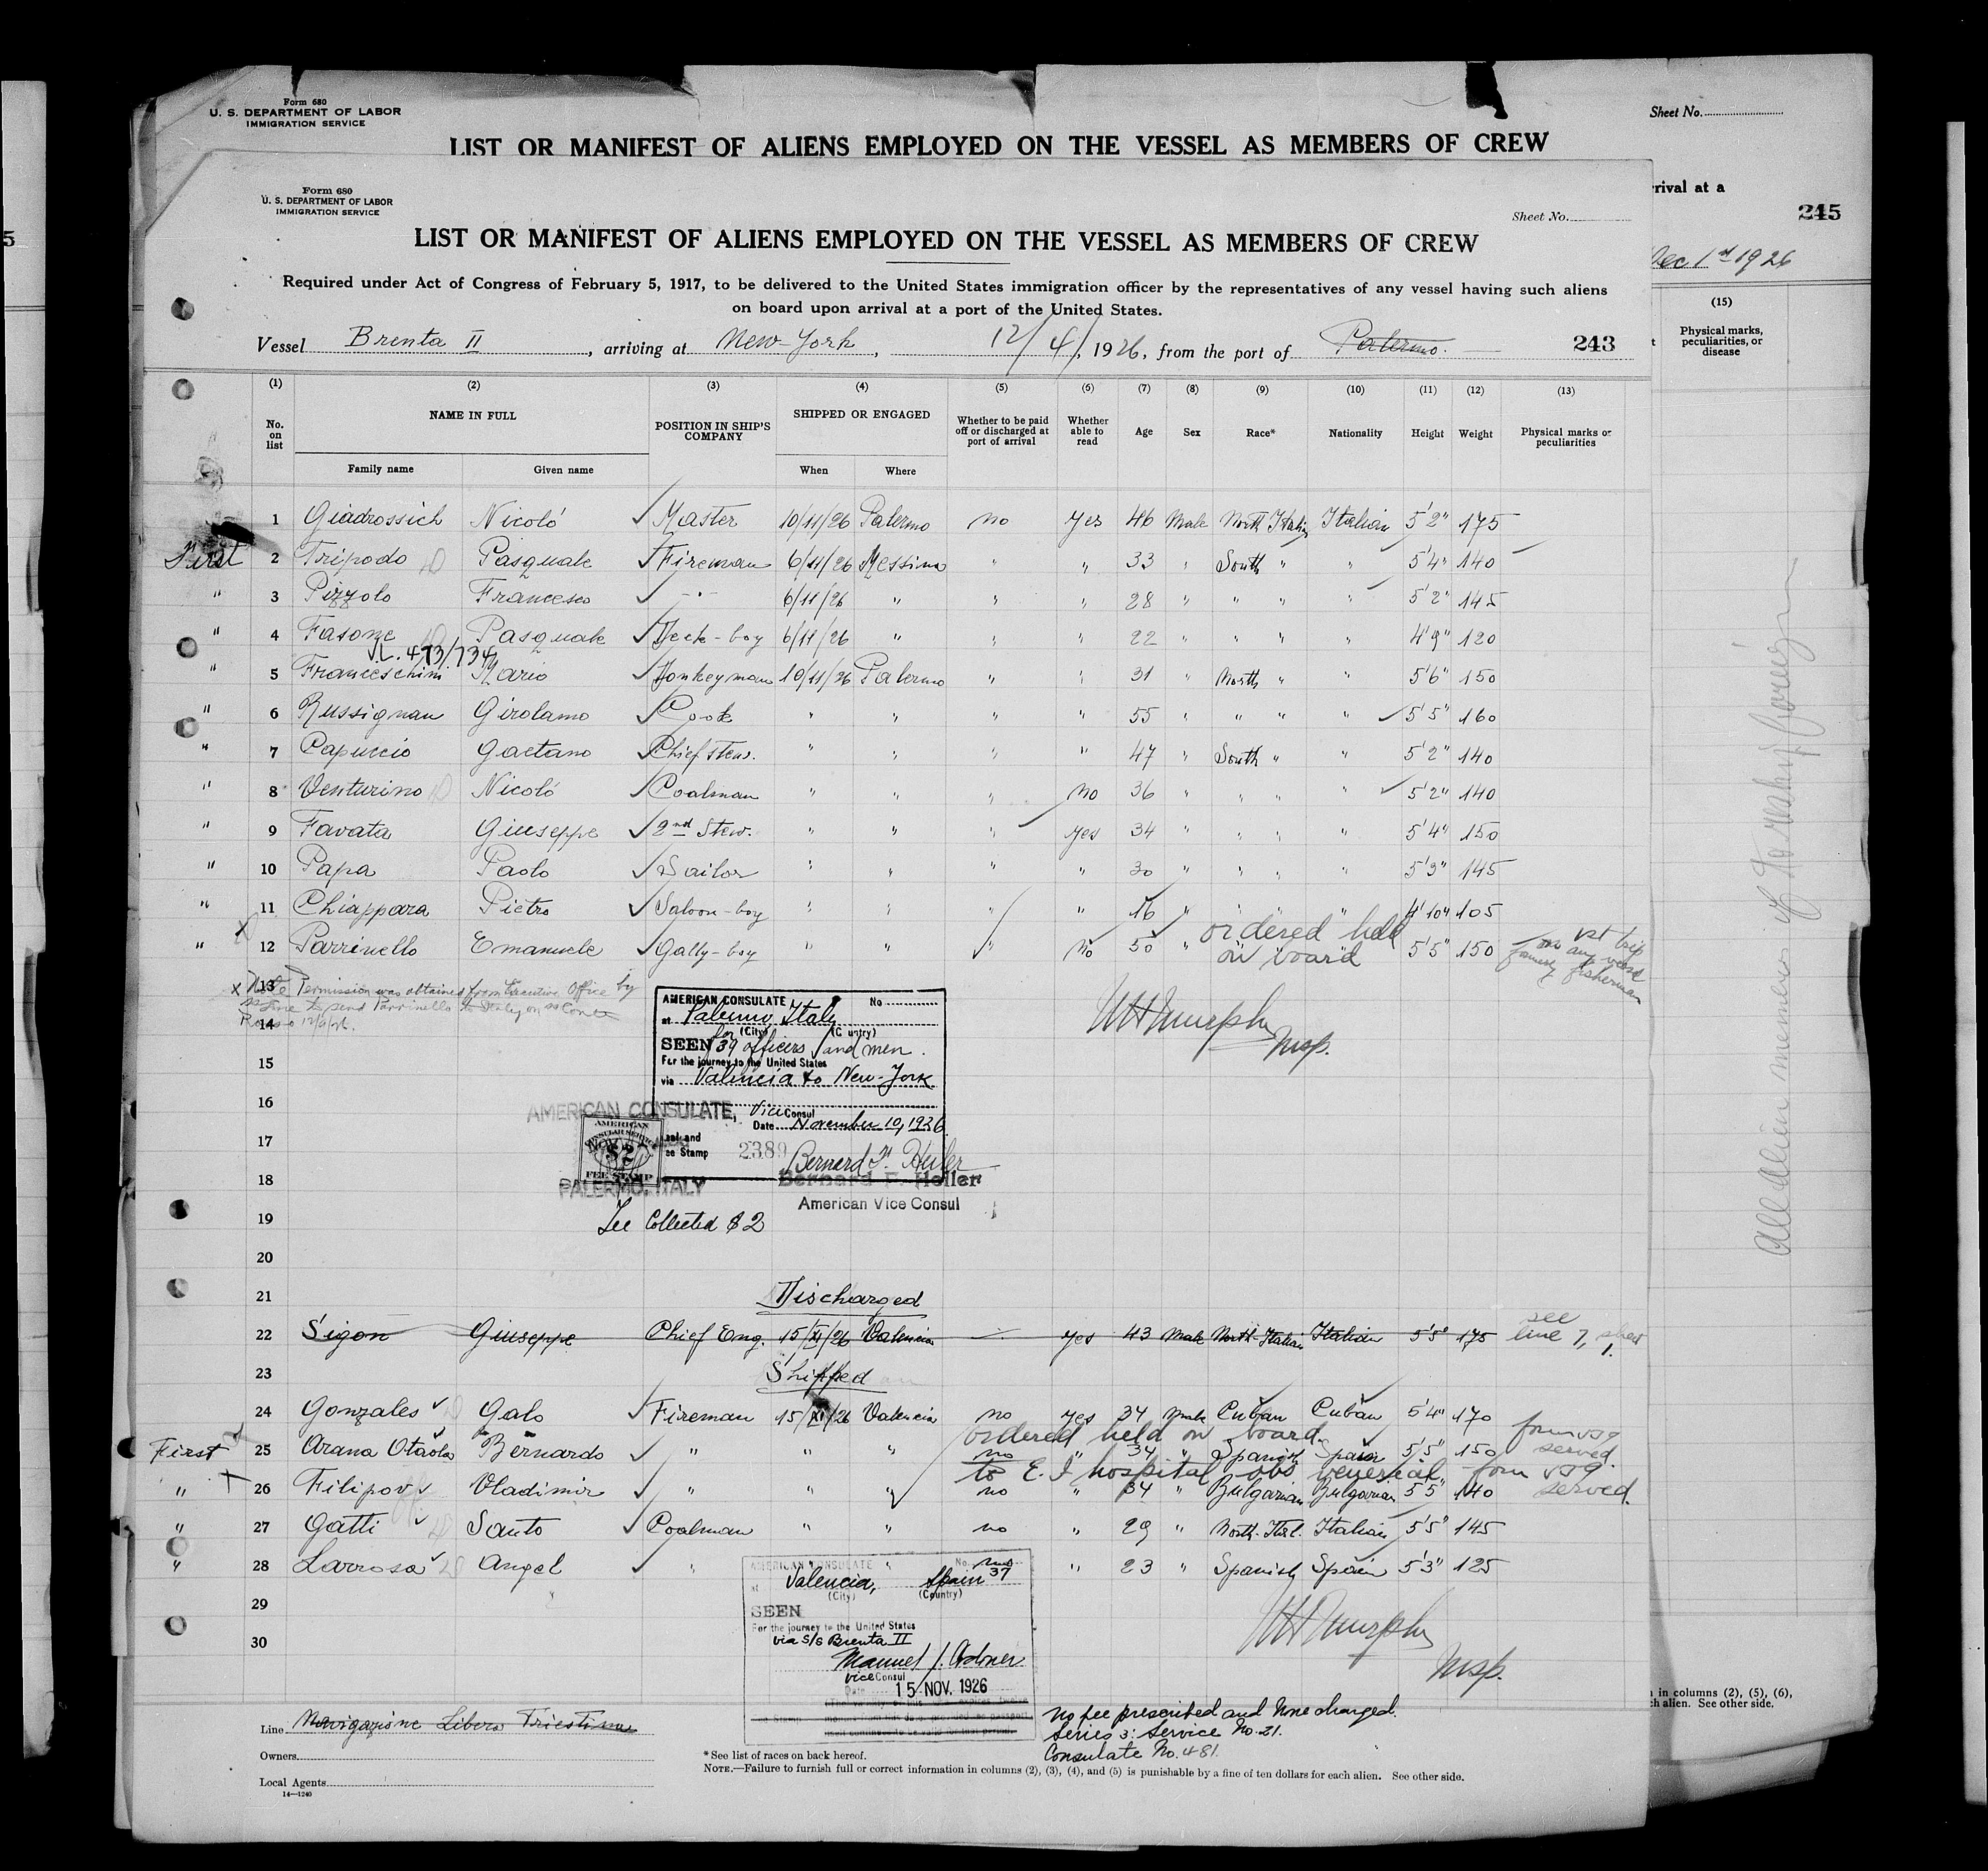 Form 680
U. S. DEPARTMENT OF LABOR
IMMIGRATION SERVICE
Sheet No.
LIST OR MANIFEST OF ALIENS EMPLOYED ON THE VESSEL AS MEMBERS OF CREW
rival at a
245
5
Dec 1st 1926
(15)
Physical marks, peculiarities, or disease
Form 680
U. S. DEPARTMENT OF LABOR
IMMIGRATION SERVICE
Sheet No.
LIST OR MANIFEST OF ALIENS EMPLOYED ON THE VESSEL AS MEMBERS OF CREW
Required under Act of Congress of February 5, 1917, to be delivered to the United States immigration officer by the representatives of any vessel having such aliens
on board upon arrival at a port of the United States.
Vessel Brenta II, arriving at New-York, 12/4/, 1926, from the port of Palermo. 243
(1) (2) (3) (4) (5) (6) (7) (8) (9) (10) (11) (12) (13)
No. on list NAME IN FULL POSITION IN SHIP'S COMPANY SHIPPED OR ENGAGED Whether to be paid off or discharged at port of arrival Whether able to read Age Sex Race* Nationality Height Weight Physical marks or peculiarities
Family name Given name When Where
1 Giadrossich Nicoló Master 10/11/26 Palermo no yes 46 Male North Italian Italian 5'2" 175
First 2 Tripodo Pasquale Fireman 6/11/26 Messina " " 33 " South " " 5'4" 140
" 3 Pizzolo Francesco " 6/11/26 " " " 28 " " " " 5'2" 145
" 4 Fasone Pasquale Deck-boy 6/11/26 " " " 22 " " " " 4'9" 120
V.L. 473/734
" 5 Franceschini Mario Donkeyman 10/11/26 Palermo " " 31 " North " " 5'6" 150
" 6 Russignan Girolamo Cook " " " " 55 " " " " 5'5" 160
" 7 Capuccio Gaetano Chief Stew. " " " " 47 " South " " 5'2" 140
" 8 Venturino Nicoló Coalman " " " no 36 " " " " 5'2" 140
" 9 Favata Giuseppe 2nd Stew. " " " yes 34 " " " " 5'4" 150
" 10 Papa Paolo Sailor " " " " 30 " " " " 5'3" 145
" 11 Chiappara Pietro Saloon-boy " " " " 16 " " " " 4'10" 105
" x 12 Parrinello Emanuele Gally-boy " " " no 50 " ordered held on board 5'5" 150 1st trip on any vessel formerly fisherman
13
x Note Permission was obtained from Executive Office by
SS Line to send Parrinello to Italy on SS Conte
Rosso
14
WH Murphy
Insp.
AMERICAN CONSULATE No
at Palermo Italy
(City) (Country)
SEEN for 39 officers and men.
For the journey to the United States
via Valencia to New-York
Vice Consul
Date November 10, 1926
Seal and Fee Stamp
2389 Bernard F. Heiler
Bernard F. Heiler
American Vice Consul
AMERICAN CONSULATE,
AMERICAN CONSULAR SERVICE
$2
FEE STAMP
PALERMO, ITALY
15
16
17
18
19
Fee Collected $2
20
21 Discharged
22 Sigon Giuseppe Chief Eng. 15/XI/26 Valencia — yes 43 Male North-Italian Italian 5'8" 175 see line 7, sheet 1.
23 Shipped
24 Gonzales Galo Fireman 15/XI/26 Valencia no yes 34 Male Cuban Cuban 5'4" 170
ordered held on board. form 259 served.
First 25 Arana Otaola Bernardo " " " no " 34 " Spanish Spain 5'5" 150
to E. I hospital obs venereal form 259 served.
" 26 Filipov Vladimir " " " no " 34 " Bulgarian Bulgarian 5'5" 140
" 27 Gatti Santo Coalman " " no " 29 " North-Ital. Italian 5'5" 145
" 28 Larrosa Angel " " " no " 23 " Spanish Spain 5'3" 125
29
30
AMERICAN CONSULATE No. 37
at Valencia, Spain
(City) (Country)
SEEN
For the journey to the United States
via S/S Brenta II
Vice Consul
Date 15 NOV. 1926
WH Murphy
Insp.
Line Navigazione Libera Triestina
Owners
Local Agents
14—1240
No fee prescribed and None charged.
Series 3: Service No. 21.
Consulate No. 481.
*See list of races on back hereof.
NOTE.—Failure to furnish full or correct information in columns (2), (3), (4), and (5) is punishable by a fine of ten dollars for each alien. See other side.
in columns (2), (5), (6),
ch alien. See other side.
All alien members of to reship foreign